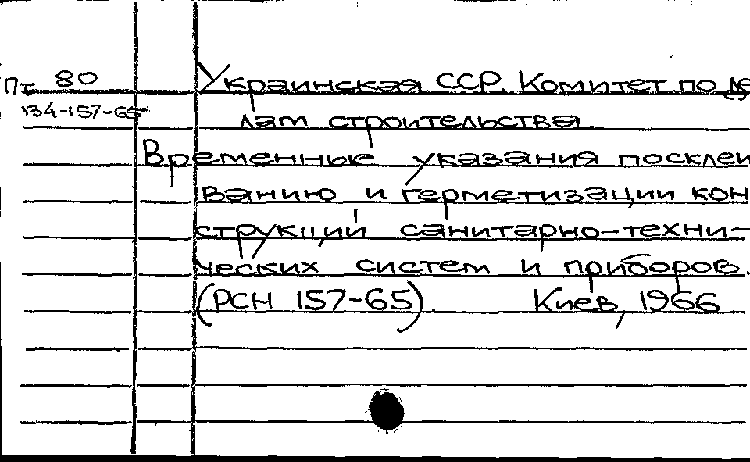 Пт 80 Украинская ССР. Комитет по де
134-157-65 лам строительства
Временные указания посклеи
ванию и герметизации кон
струкций санитарно-техни-
ческих систем и приборов.
(РСН 157-65) Киев, 1966